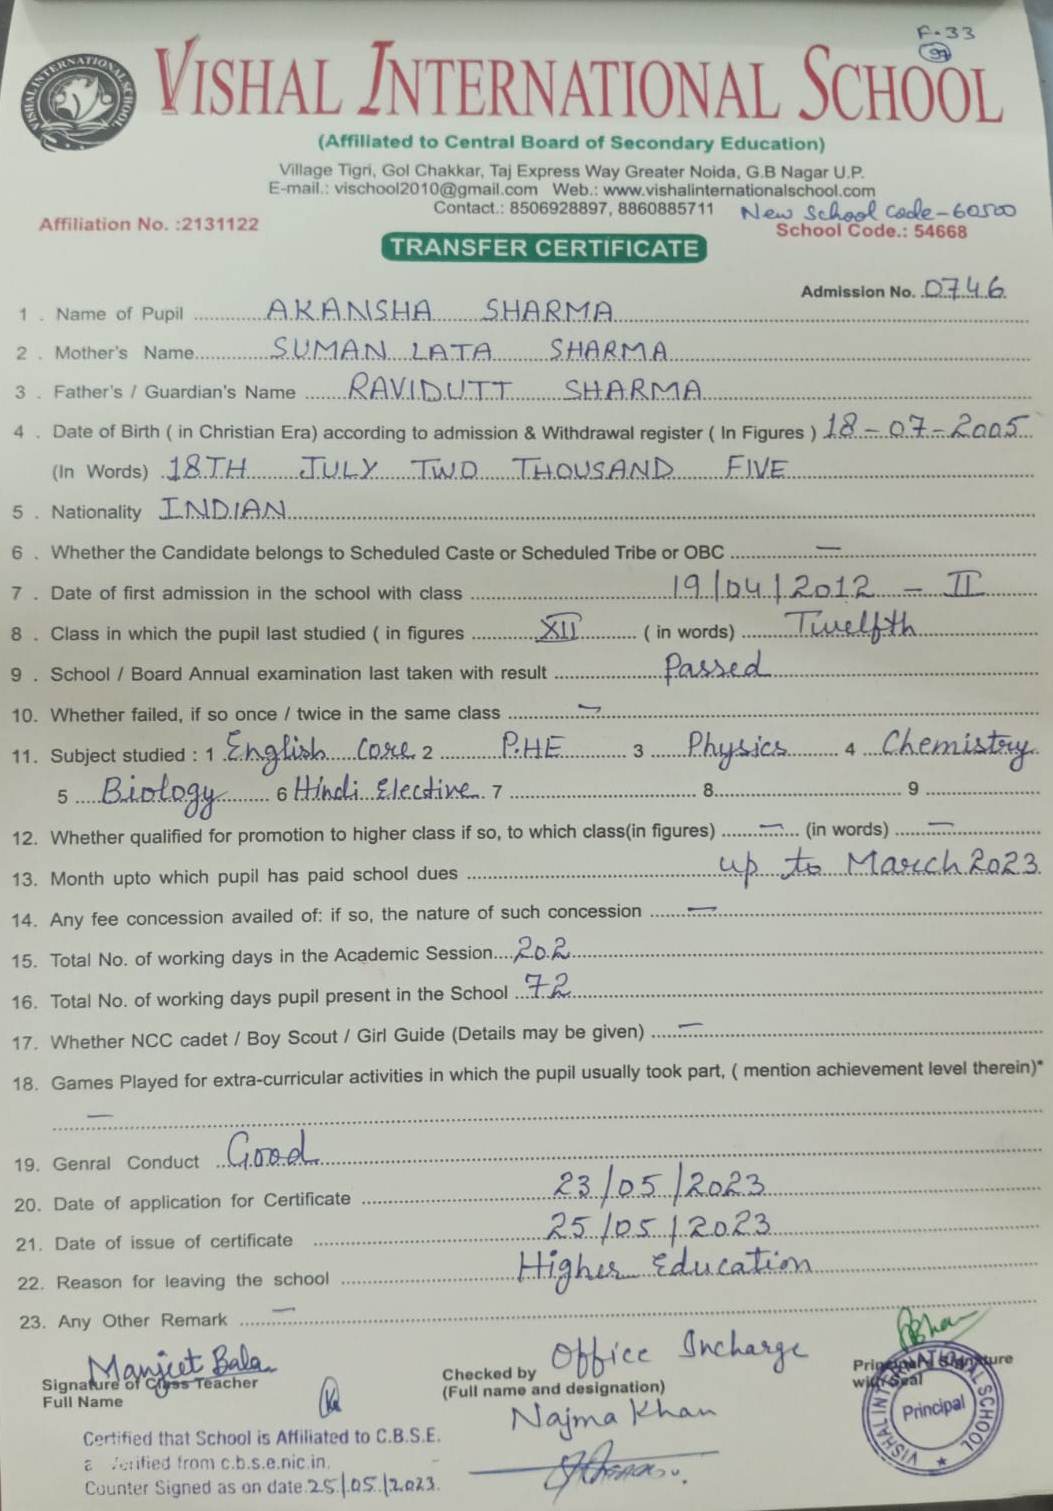 F-33
VISHAL INTERNATIONAL SCHOOL
(Affiliated to Central Board of Secondary Education)
Village Tigri, Gol Chakkar, Taj Express Way Greater Noida, G.B Nagar U.P.
E-mail.: vischool2010@gmail.com Web.: www.vishalinternationalschool.com
Contact.: 8506928897, 8860885711 New School Code-60500
Affiliation No. :2131122 School Code.: 54668
TRANSFER CERTIFICATE
Admission No. 0746
1 . Name of Pupil AKANSHA SHARMA
2 . Mother's Name SUMAN LATA SHARMA
3 . Father's / Guardian's Name RAVIDUTT SHARMA
4 . Date of Birth ( in Christian Era) according to admission & Withdrawal register ( In Figures ) 18-07-2005
(In Words) 18TH JULY TWO THOUSAND FIVE
5 . Nationality INDIAN
6 . Whether the Candidate belongs to Scheduled Caste or Scheduled Tribe or OBC —
7 . Date of first admission in the school with class 19/04/2012 - II
8 . Class in which the pupil last studied ( in figures XII ( in words) Twelfth
9 . School / Board Annual examination last taken with result Passed
10. Whether failed, if so once / twice in the same class —
11. Subject studied : 1 English Core 2 P.HE 3 Physics 4 Chemistry
5 Biology 6 Hindi Elective 7 8 9
12. Whether qualified for promotion to higher class if so, to which class(in figures) — (in words) —
13. Month upto which pupil has paid school dues up to March 2023
14. Any fee concession availed of: if so, the nature of such concession —
15. Total No. of working days in the Academic Session 202
16. Total No. of working days pupil present in the School 72
17. Whether NCC cadet / Boy Scout / Girl Guide (Details may be given) —
18. Games Played for extra-curricular activities in which the pupil usually took part, ( mention achievement level therein)*
—
19. Genral Conduct Good
20. Date of application for Certificate 23/05/2023
21. Date of issue of certificate 25/05/2023
22. Reason for leaving the school Higher Education
23. Any Other Remark —
Manjeet Bala
Signature of Class Teacher
Full Name
Checked by Office Incharge
(Full name and designation)
Najma Khan
Principal Signature
with Seal
VISHAL INTERNATIONAL SCHOOL
Principal
Certified that School is Affiliated to C.B.S.E.
verified from c.b.s.e.nic.in.
Counter Signed as on date 25/05/2023.